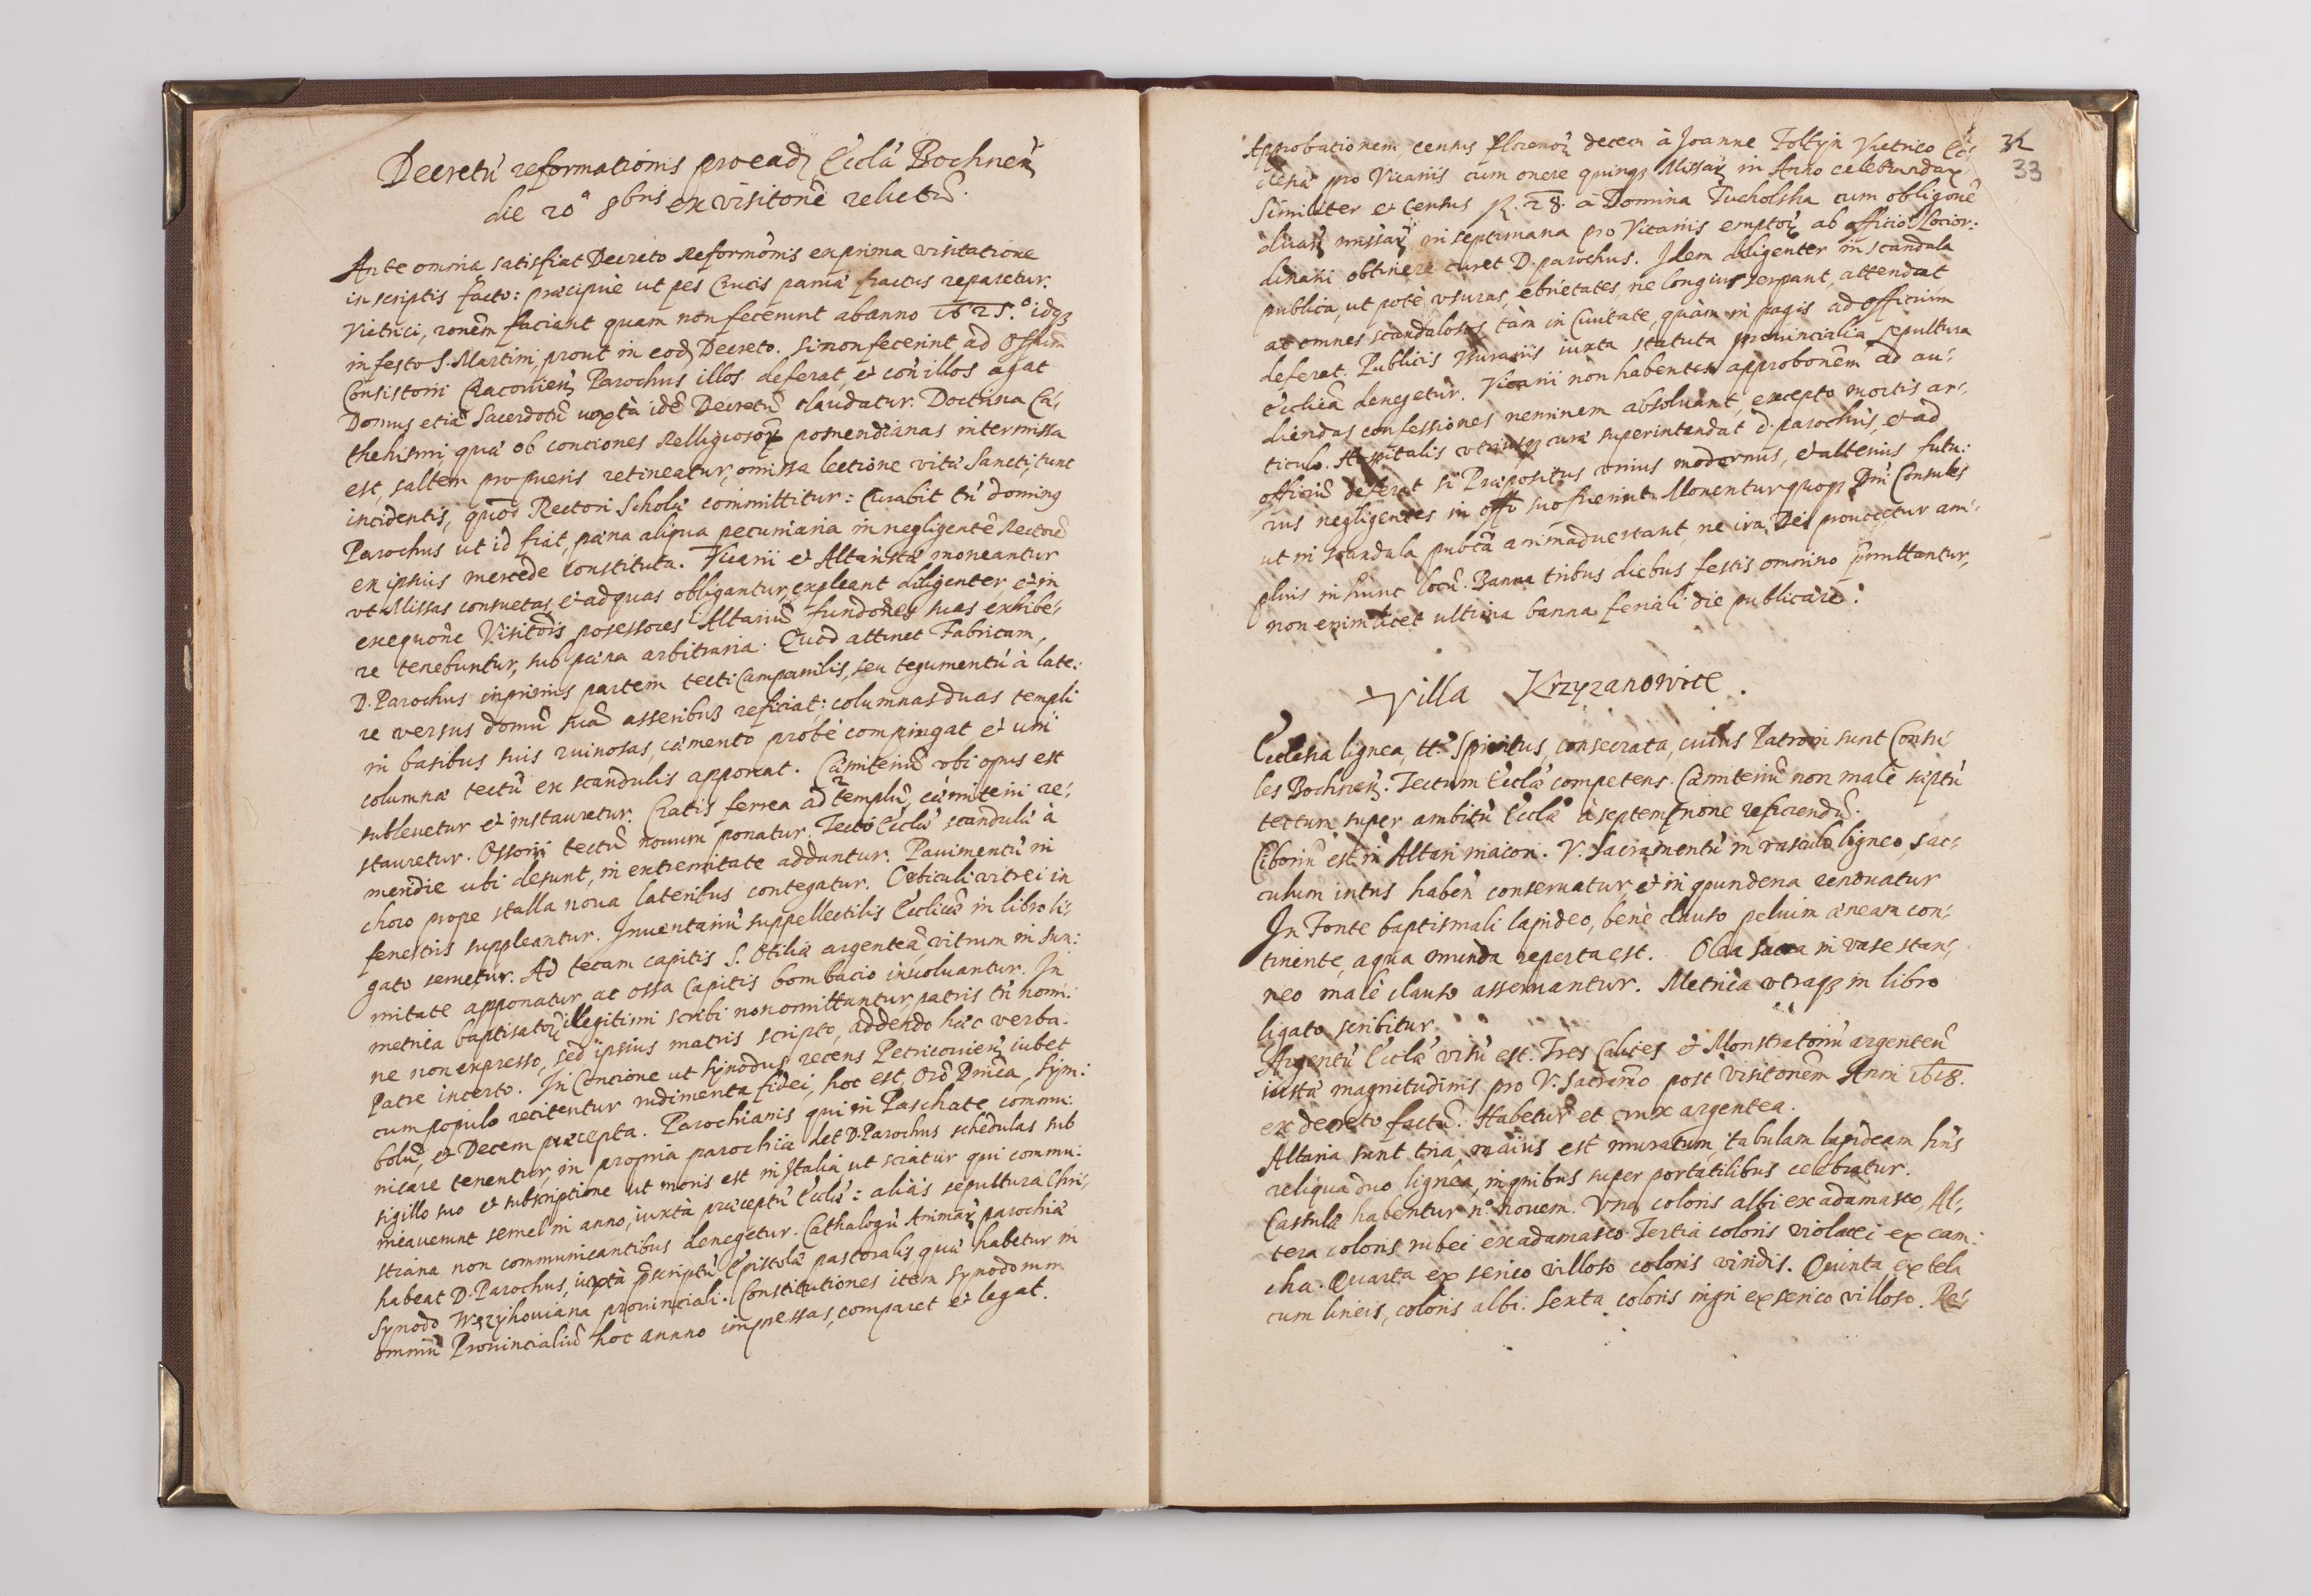 Decretũ reformationis pro ead. Ecclã Bochnen̄
die 20ª 8bris ex visitonẽ relictũ.
Ante omnia satisfiat Decreto Reformõnis ex prima visitatione
in scriptis facto: præcipuè ut pes Crucis parua fractus reparetur.
Vietrici, ronẽm faciant quam non fecerunt ab anno 1625.º idq₃
in festo S. Martini, prout in eod. Decreto. Si non fecerint ad Offium
Consistorii Cracouien̄ Parochus illos deferat, et coñ illos agat
Domus etiã Sacerdotũ iuxtà idẽ Decretũ claudatur. Doctrina Ca:
thehismi quæ ob conciones Relligiosoꝝ pomerdianas intermissa
est, saltem pro pueris retineatur, omissa lectione vitæ Sancti, tunc
incidentis, quod Rectori Scholæ committitur: Curabit tñ doming
Parochus ut id fiat, pæna aliqua pecuniaria in negligentẽ Rectorẽ
ex ipsius mercede constituta. Vicarii et Altaristæ moneantur
ut Missas consuetas, et ad quas obligantur, expleant diligenter, et in
exequonẽ Visitõis posessores Altariũ fundoñes suas exhibe:
re tenebuntur, sub pæna arbitraria. Quod attinet Fabricam,
D. Parochus inprimis partem tecti Campanilis, seu tegumentũ à late:
re versus domũ suã asseribus reficiat; columnas duas templi
in basibus suis ruinosas, cæmento probè compingat, et uni
columnæ tectũ ex scandulis apponat. Cæmiteriũ ubi opus est
subleuetur et instauretur. Cratis ferrea ad templũ, cæmiterii re:
stauretur. Ossorii tectũ nouum ponatur. Tecto Ecclæ scandulæ à
meridie ubi desunt, in extremitate addantur. Pauimentũ in
choro prope stalla noua lateribus contegatur. Orbiculi vitrei in
fenestris suppleantur. Inuentariũ suppellectilis Ecclicæ in libro li:
gato seruetur. Ad tecam capitis S. Otiliæ argenteã, vitrum in sum:
mitate apponatur ac ossa Capitis bombacio inuoluantur. In
metrica baptisatoꝝ illegitimi scribi non omittantur, patris tñ nomi:
ne non expresso, sed ipsius matris scripto, addendo hæc verba.
Patre incerto. In Concione ut Synodus recens Petricouien̄ iubet
cum populo recitentur rudimenta fidei, hoc est, Orõ Dnica, Sym:
bolũ, et Decem præcepta. Parochianis qui in Paschate commu:
nicare tenentur, in propria parochia det D. Parochus schedulas sub
sigillo suo et subscriptione ut moris est in Italia ut sciatur qui commu:
nicauerunt semel in anno, iuxtà præceptũ Ecclæ: aliàs sepultura Chri:
stiana non communicantibus denegetur. Cathalogũ Animaꝝ parochiæ
habeat D. Parochus, iuxtà p̃scriptũ Epistolæ pastoralis, quæ habetur in
Synodo prouinciali. Constitutiones item Synodorum
omniũ Prouincialiũ hoc annno impressas, comparet et legat.
32
33
Approbationem census florenoꝝ decem à Joanne Foltyn Vietrico Ec:
clesiæ pro Vicariis cum onere quinq₃ Missaꝝ in Anno celebrandaꝝ
Similiter et Census fl. 28. à Domina Tucholska cum obligonẽ
duaꝝ missaꝝ in septimana pro Vicariis emptoꝝ ab officio Locior:
dinarii obtinere curet D. parochus. Idem diligenter in scandala
publica, ut potè usuras, ebrietates, ne longius serpant, attendat
ac omnes scandalosos tàm in Ciuitate, quàm in pagis ad officium
deferat. Publicis Vsurariis iuxta statuta prouincialia sepultura
Ecclica denegetur. Vicarii non habentes approbonẽm ad au:
diendas confessiones neminem absoluant, excepto mortis ar:
ticulo. Hospitalis utriusq₃ curæ superintendat d. parochus, et ad
officiũ deferat si Præpositus unius modernus, et alterius futu:
rus negligentes in offõ suo fuerint. Monentur quoq₃ Dni Consules
ut in scandala pubca animaduertant, ne ira Dei prouocetur am:
plius in hunc locũ. Banna tribus diebus festis omnino p̃mittantur,
non enim licet ultima banna feriali die publicare.
Villa Krzyzanowice.
Ecclesia lignea, tt.º Spiritus, consecrata, cuius Patroni sunt Consu:
les Bochnen̄. Tectum Ecclæ competens. Cæmiteriũ non malè septũ
tectum super ambitũ Ecclæ à septemtrione reficiendũ.
Ciboriũ est in Altari maiori. V. Sacramentũ in vasculo ligneo, sac:
culum intus haben̄ conseruatur et in quindena renouatur
In Fonte baptismali lapideo, benè clauso peluim æneam con:
tinente, aqua munda reperta est. Olea sacra in vase stan:
neo malè clauso asseruantur. Metrica utraq₃ in libro
ligato scribitur.
Argentũ Ecclæ visũ est. Tres Calices et Monstratoriũ argenteũ
iustæ magnitudinis pro V. Sacrẽmo post visitonẽm Anni 1618.
ex decreto factũ. Habetur et crux argentea.
Altaria sunt tria, maius est muratum, tabulam lapideam hñs
reliqua duo lignea, in quibus super portatilibus celebratur.
Casulæ habentur nº nouem. Vna coloris albi ex adamasco, Al:
tera coloris rubei ex adamasco Tertia coloris violacei ex cam:
cha. Quarta ex serico villoso coloris viridis. Quinta ex tela
cum lineis, coloris albi. Sexta coloris nigri ex serico villoso. Re: